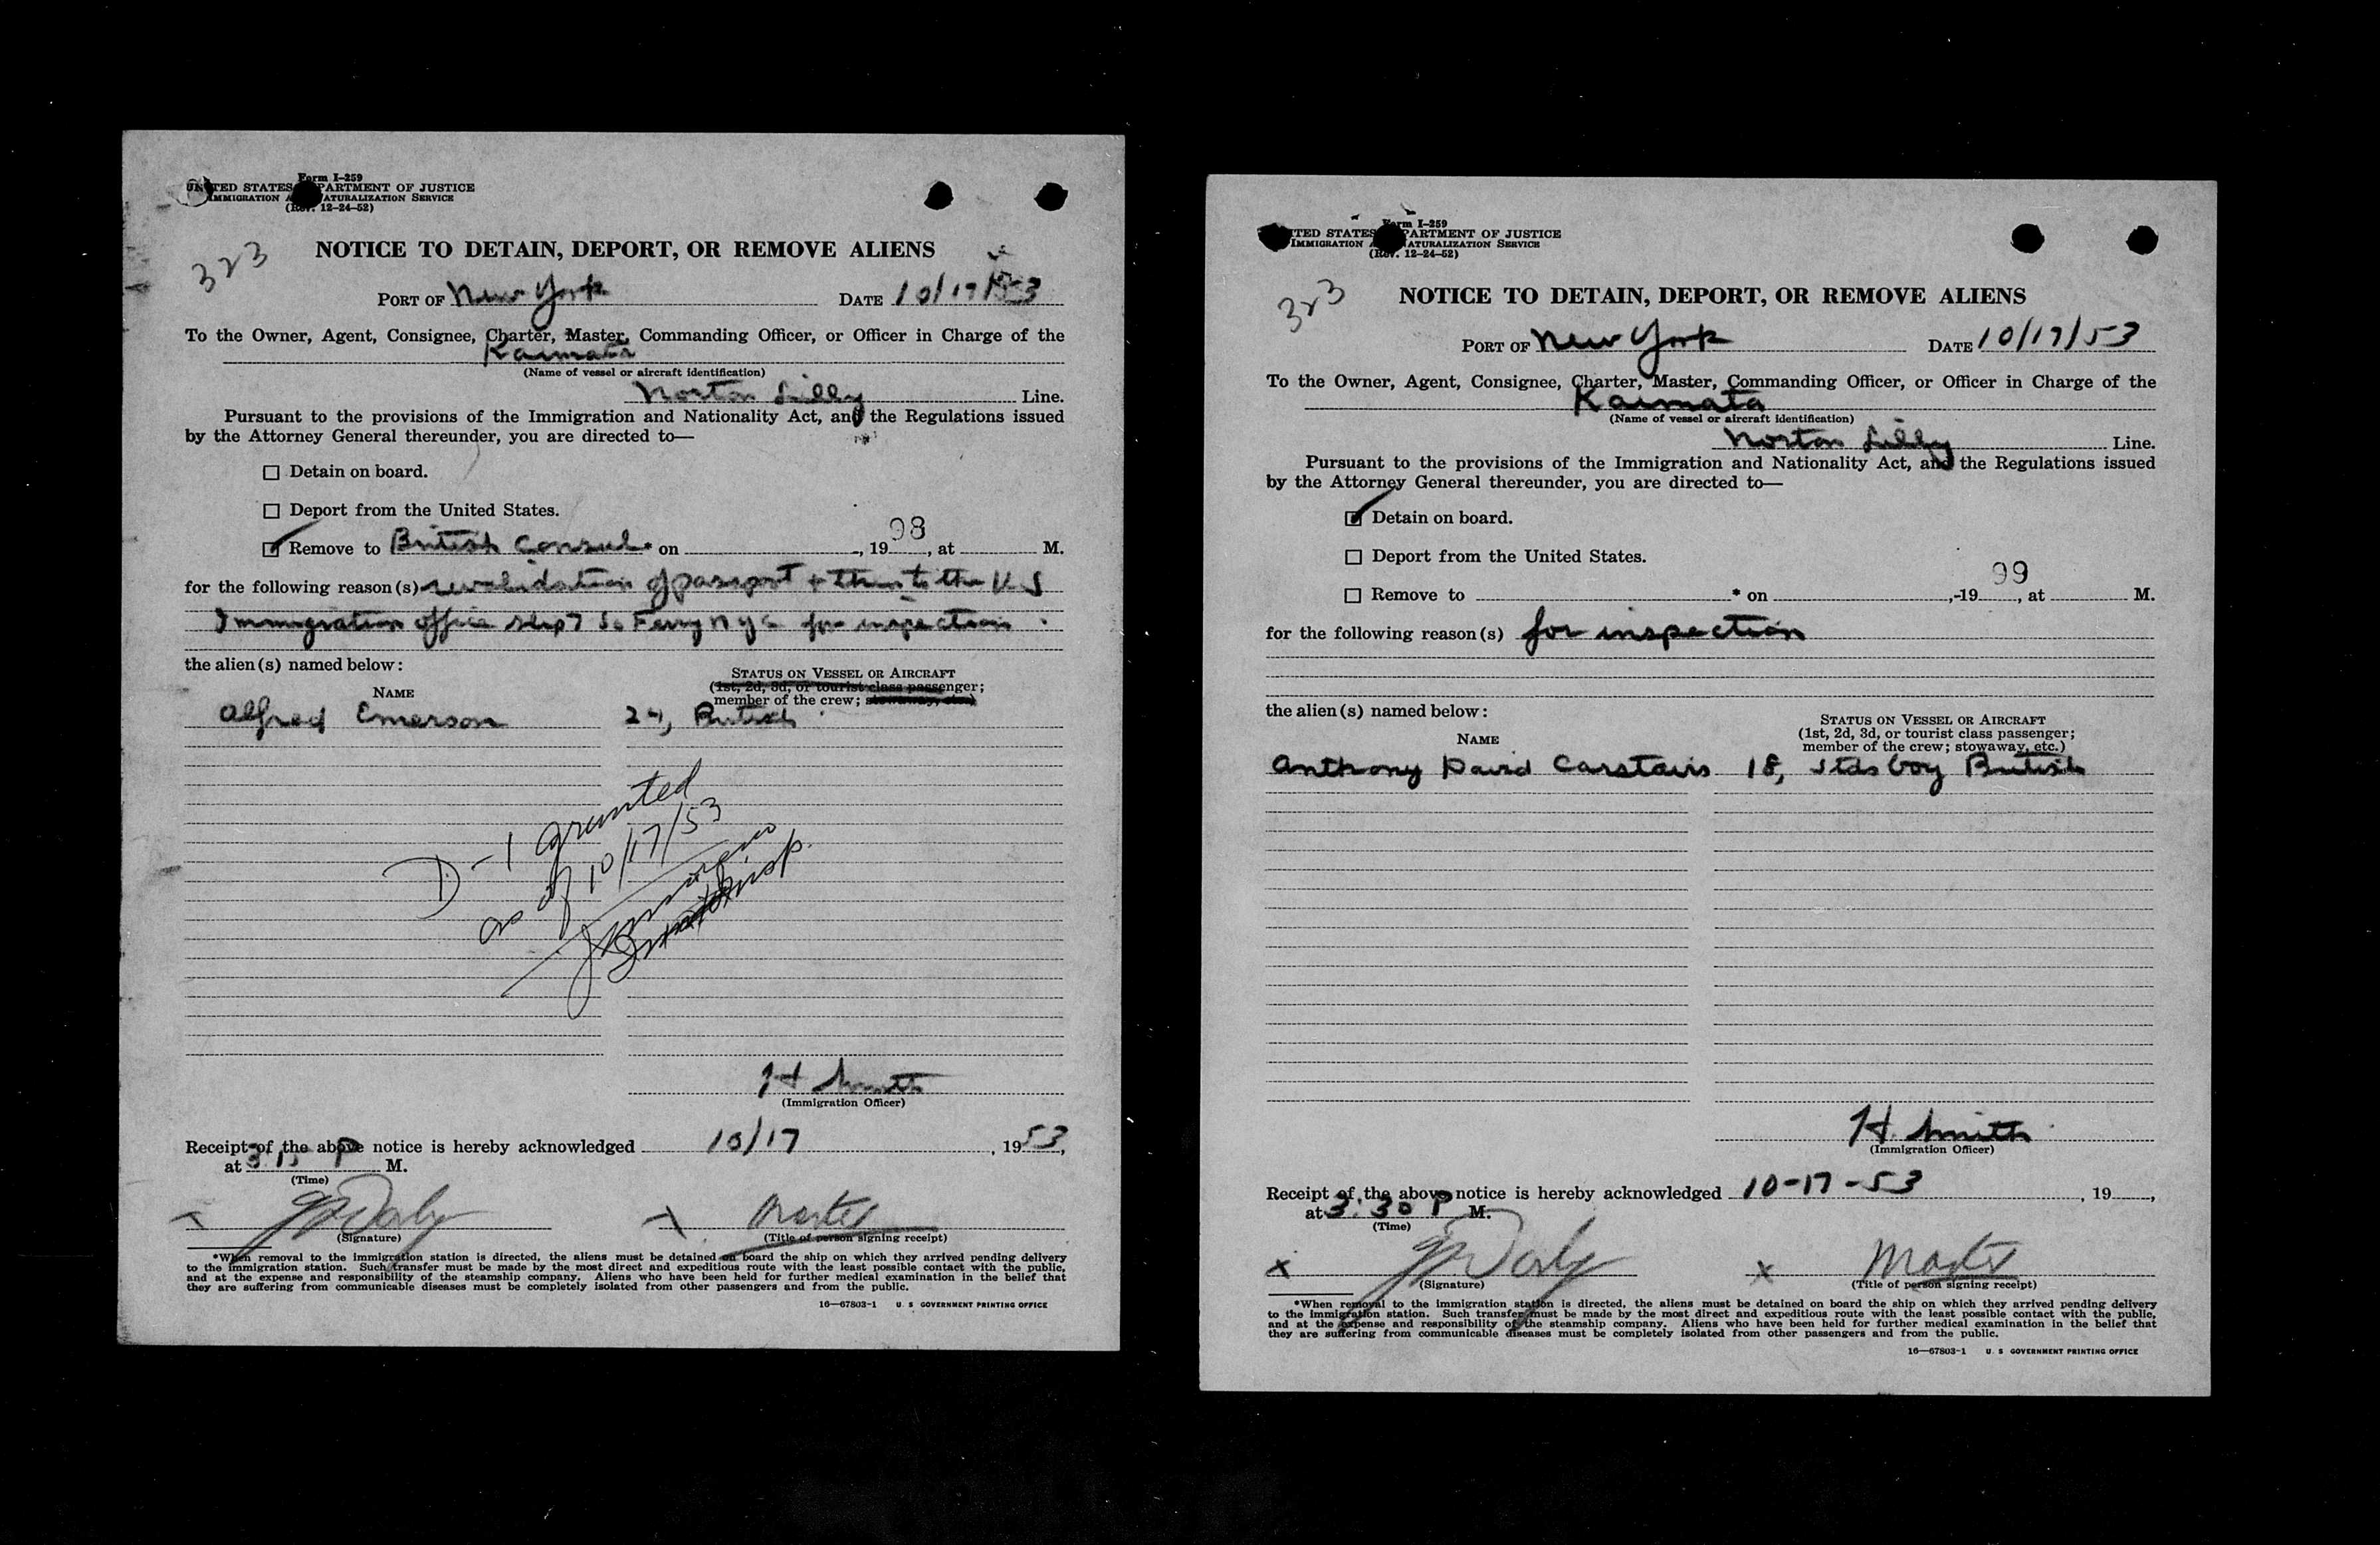 Form I-259
UNITED STATES DEPARTMENT OF JUSTICE
IMMIGRATION AND NATURALIZATION SERVICE
(Rev. 12-24-52)
323
NOTICE TO DETAIN, DEPORT, OR REMOVE ALIENS
PORT OF New York DATE 10/17/53
To the Owner, Agent, Consignee, Charter, Master, Commanding Officer, or Officer in Charge of the
Kaimata
(Name of vessel or aircraft identification)
Norton Lilly Line.
Pursuant to the provisions of the Immigration and Nationality Act, and the Regulations issued
by the Attorney General thereunder, you are directed to—
☐ Detain on board.
☐ Deport from the United States.
98
☑ Remove to British Consul * on , 19 , at M.
for the following reason(s) revalidation of passport + then to the U S
Immigration office slip 7 So Ferry NYC for inspection.
the alien(s) named below:
NAME
STATUS ON VESSEL OR AIRCRAFT
(1st, 2d, 3d, or tourist class passenger;
member of the crew; stowaway, etc.)
Alfred Emerson 24, British
D-1 granted
as of 10/17/53
insp.
H Smith
(Immigration Officer)
Receipt of the above notice is hereby acknowledged 10/17, 1953,
at 3:15 P M.
(Time)
x Daly x Master
(Signature) (Title of person signing receipt)
*When removal to the immigration station is directed, the aliens must be detained on board the ship on which they arrived pending delivery
to the immigration station. Such transfer must be made by the most direct and expeditious route with the least possible contact with the public,
and at the expense and responsibility of the steamship company. Aliens who have been held for further medical examination in the belief that
they are suffering from communicable diseases must be completely isolated from other passengers and from the public.
16—67803-1 U. S GOVERNMENT PRINTING OFFICE
Form I-259
UNITED STATES DEPARTMENT OF JUSTICE
IMMIGRATION AND NATURALIZATION SERVICE
(Rev. 12-24-52)
323
NOTICE TO DETAIN, DEPORT, OR REMOVE ALIENS
PORT OF New York DATE 10/17/53
To the Owner, Agent, Consignee, Charter, Master, Commanding Officer, or Officer in Charge of the
Kaimata
(Name of vessel or aircraft identification)
Norton Lilly Line.
Pursuant to the provisions of the Immigration and Nationality Act, and the Regulations issued
by the Attorney General thereunder, you are directed to—
☑ Detain on board.
☐ Deport from the United States.
99
☐ Remove to * on , 19 , at M.
for the following reason(s) for inspection
the alien(s) named below:
NAME
STATUS ON VESSEL OR AIRCRAFT
(1st, 2d, 3d, or tourist class passenger;
member of the crew; stowaway, etc.)
Anthony David Carstairs 18, Stds boy British
H. Smith
(Immigration Officer)
Receipt of the above notice is hereby acknowledged 10-17-53 , 19 ,
at 3:30 P M.
(Time)
x Daly x Master
(Signature) (Title of person signing receipt)
*When removal to the immigration station is directed, the aliens must be detained on board the ship on which they arrived pending delivery
to the immigration station. Such transfer must be made by the most direct and expeditious route with the least possible contact with the public,
and at the expense and responsibility of the steamship company. Aliens who have been held for further medical examination in the belief that
they are suffering from communicable diseases must be completely isolated from other passengers and from the public.
16—67803-1 U. S GOVERNMENT PRINTING OFFICE